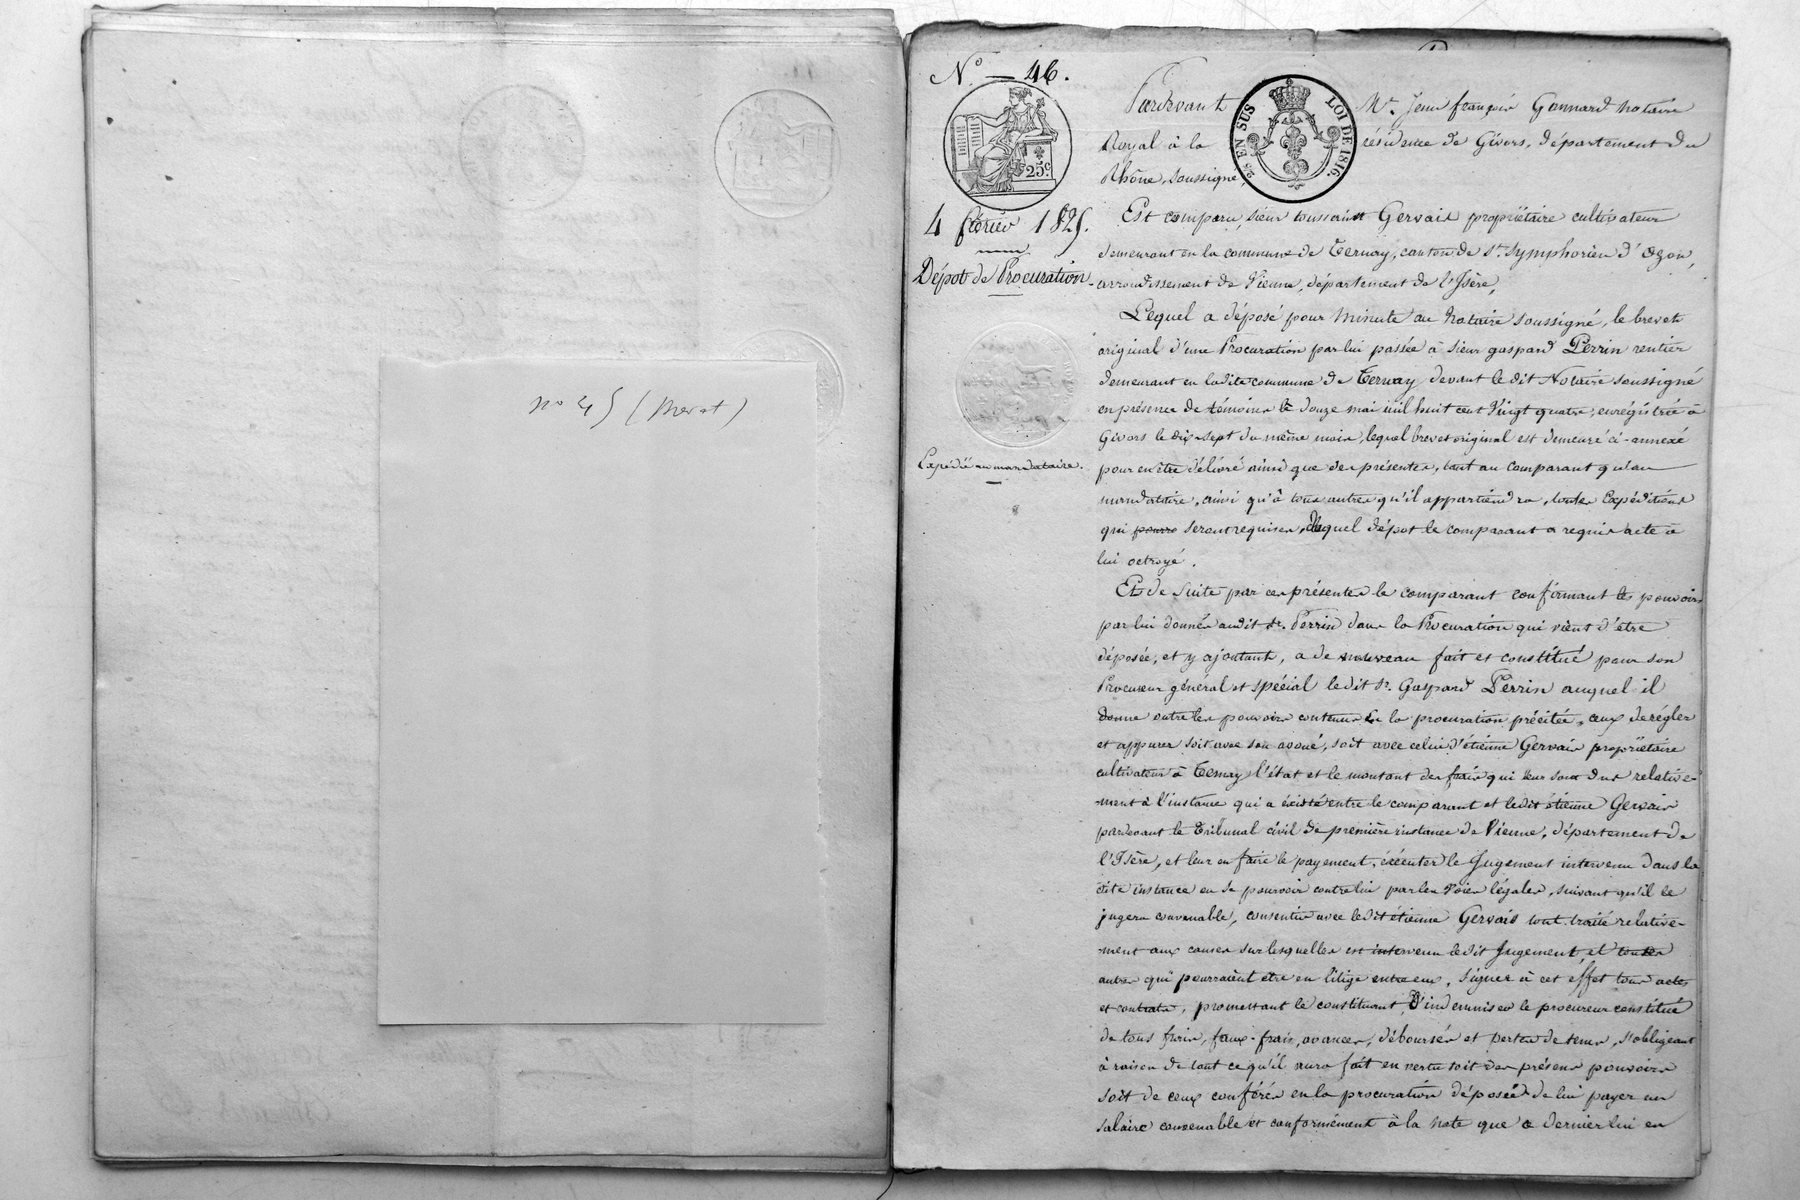 n° 45 (Merat)
N.° — 46.
25c.
4 février 1825.
Dépot de Procuration.
Expédié au mandataire.
2/5 EN SUS
LOI DE 1816.
Pardevant Me. Jean françois Gonnard notaire
Royal à la résidence de Givors, département du
Rhône, soussigné,
Est comparu, sieur toussaint Gervais propriétaire cultivateur
demeurant en la commune de Ternay, canton de St. Symphorien d'ozon,
arrondissement de Vienne, département de l'Isère,
Lequel a déposé pour minute au Notaire soussigné, le brevet
original d'une Procuration par lui passée à sieur gaspard Perrin rentier
demeurant en ladite commune de Ternay devant le dit Notaire soussigné
en présence de témoins le douze mai mil huit cent vingt quatre, enregistrée à
Givors le dix-sept du même mois, lequel brevet original est demeuré ci-annexé
pour en être délivré ainsi que des présentes, tant au comparant qu'au
mandataire, ainsi qu'à tous autres qu'il appartiendra, toutes Expéditions
qui seront requises, duquel dépot le comparant a requis acte à
lui octroyé.
Et de suite par ces présentes le comparant confirmant les pouvoirs
par lui donnés audit sr. Perrin dans la Procuration qui vient d'être
déposée, et y ajoutant, a de nouveau fait et constitué pour son
Procureur général et spécial ledit Sr. Gaspard Perrin auquel il
donne outre les pouvoirs contenus en la procuration précitée, ceux de régler
et appurer soit avec son avoué, soit avec celui d'étienne Gervais propriétaire
cultivateur à Ternay l'état et le montant des frais qui leur sont dus relative-
-ment à l'instance qui a existé entre le comparant et ledit étienne Gervais
pardevant le Tribunal civil de première instance de Vienne, département de
l'Isère, et leur en faire le payement, exécuter le Jugement intervenu dans la
dite instance ou se pourvoir contre lui par les voies légales, suivant qu'il le
jugera convenable, consentir avec ledit étienne Gervais tout traité relative-
-ment aux causes sur lesquelles est intervenu ledit Jugement, et toutes
autres qui pourraient être en litige entre eux, signer à cet effet tous actes
et contrats, promettant le constituant, d'indemniser le procureur constitué
de tous frais, faux-frais, avances, déboursés et pertes de tems, s'obligeant
à raison de tout ce qu'il aura fait en vertu soit des présens pouvoirs
soit de ceux conférés en la procuration déposée de lui payer un
salaire convenable et conformément à la note que ce dernier lui en